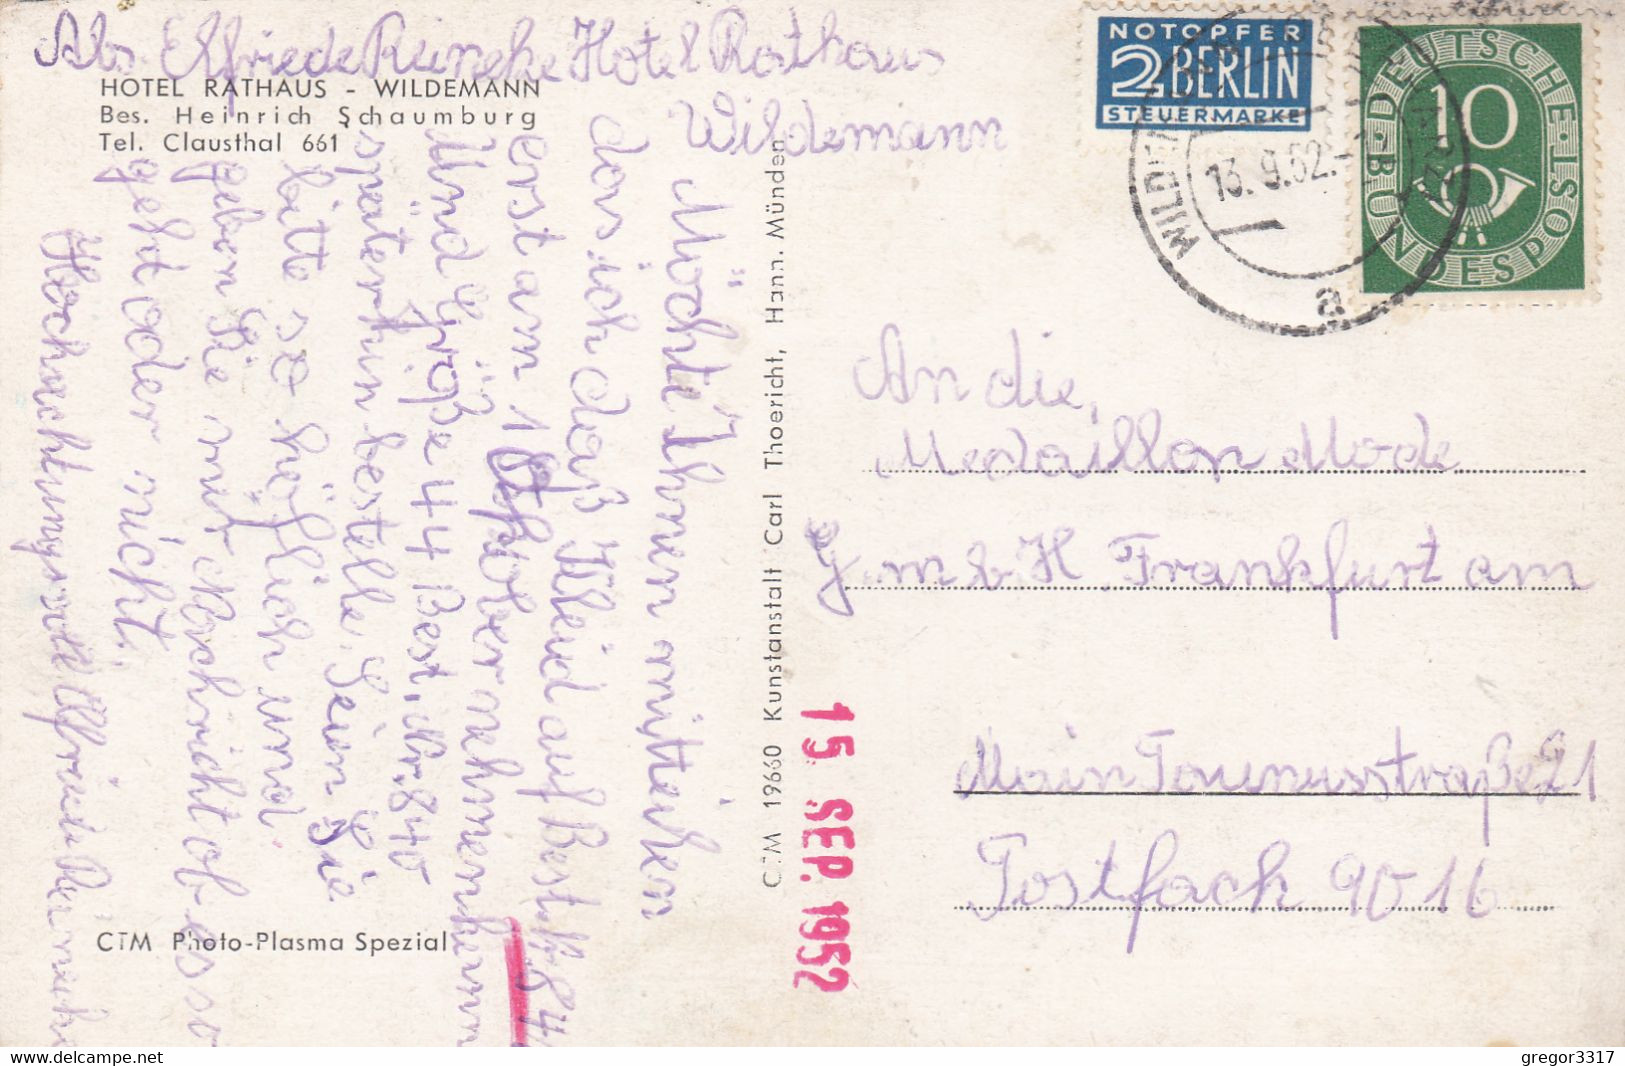 Abs. Elfriede Reineke Hotel Rathaus
Wildemann
HOTEL RATHAUS - WILDEMANN
Bes. Heinrich Schaumburg
Tel. Clausthal 661
Möchte Ihnen mitteilen
das ich daß Kleid auf Best. Nr. 84
erst am 1 Oktober nehmen kann
Und Größe 44 Best. Nr. 840
späterhin bestelle. Seien Sie
bitte so höflich und
geben Sie mir Nachricht ob es so
geht oder nicht.
Hochachtungsvoll Elfriede Reineke
CTM Photo-Plasma Spezial
CTM 19660 Kunstanstalt Carl Thoericht, Hann. Münden
15. SEP. 1952
NOTOPFER
2 BERLIN
STEUERMARKE
DEUTSCHE BUNDESPOST
10
13.9.52.
a
An die,
Medaillon Mode
G.m b H Frankfurt am
Main Taunusstraße 21
Postfach 9016
www.delcampe.net
gregor3317